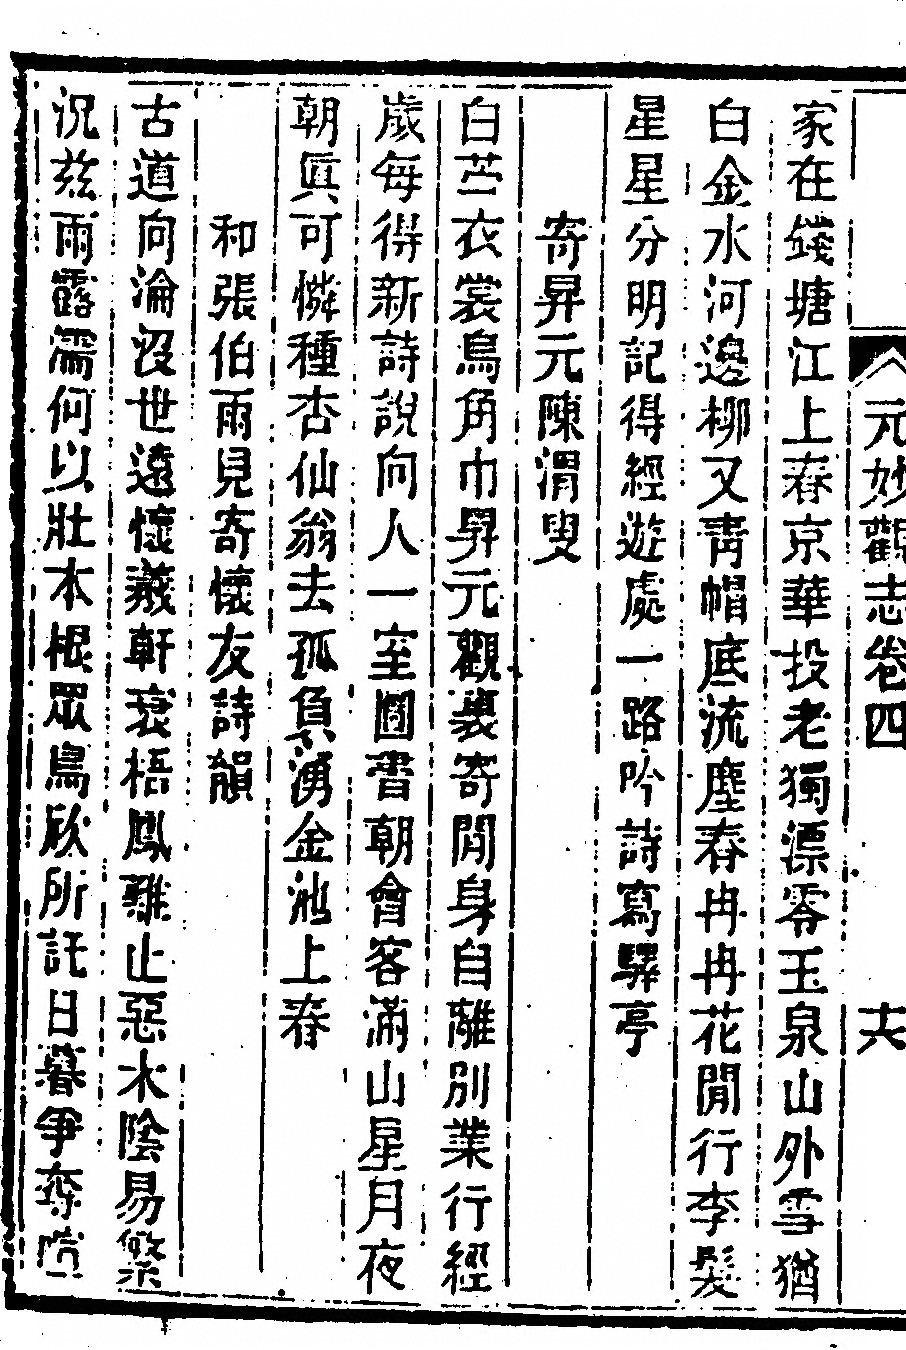 元妙觀志卷四 十六
家在錢塘江上春京華投老獨漂零玉泉山外雪猶
白金水河邊柳又靑帽底流塵春冉冉花閒行李髮
星星分明記得經遊處一路吟詩寫驛亭
寄昇元陳渭叟
白苎衣裳烏角巾昇元觀裏寄閒身自離別業行經
歲每得新詩說向人一室圖書朝會客滿山星月夜
朝眞可憐種杏仙翁去孤負湧金池上春
和張伯雨見寄懷友詩韻
古道向淪沒世遠懷羲軒衰梧鳳難止惡木陰易繁
況兹雨露濡何以壯本根眾鳥欣所託日暮爭奪喧